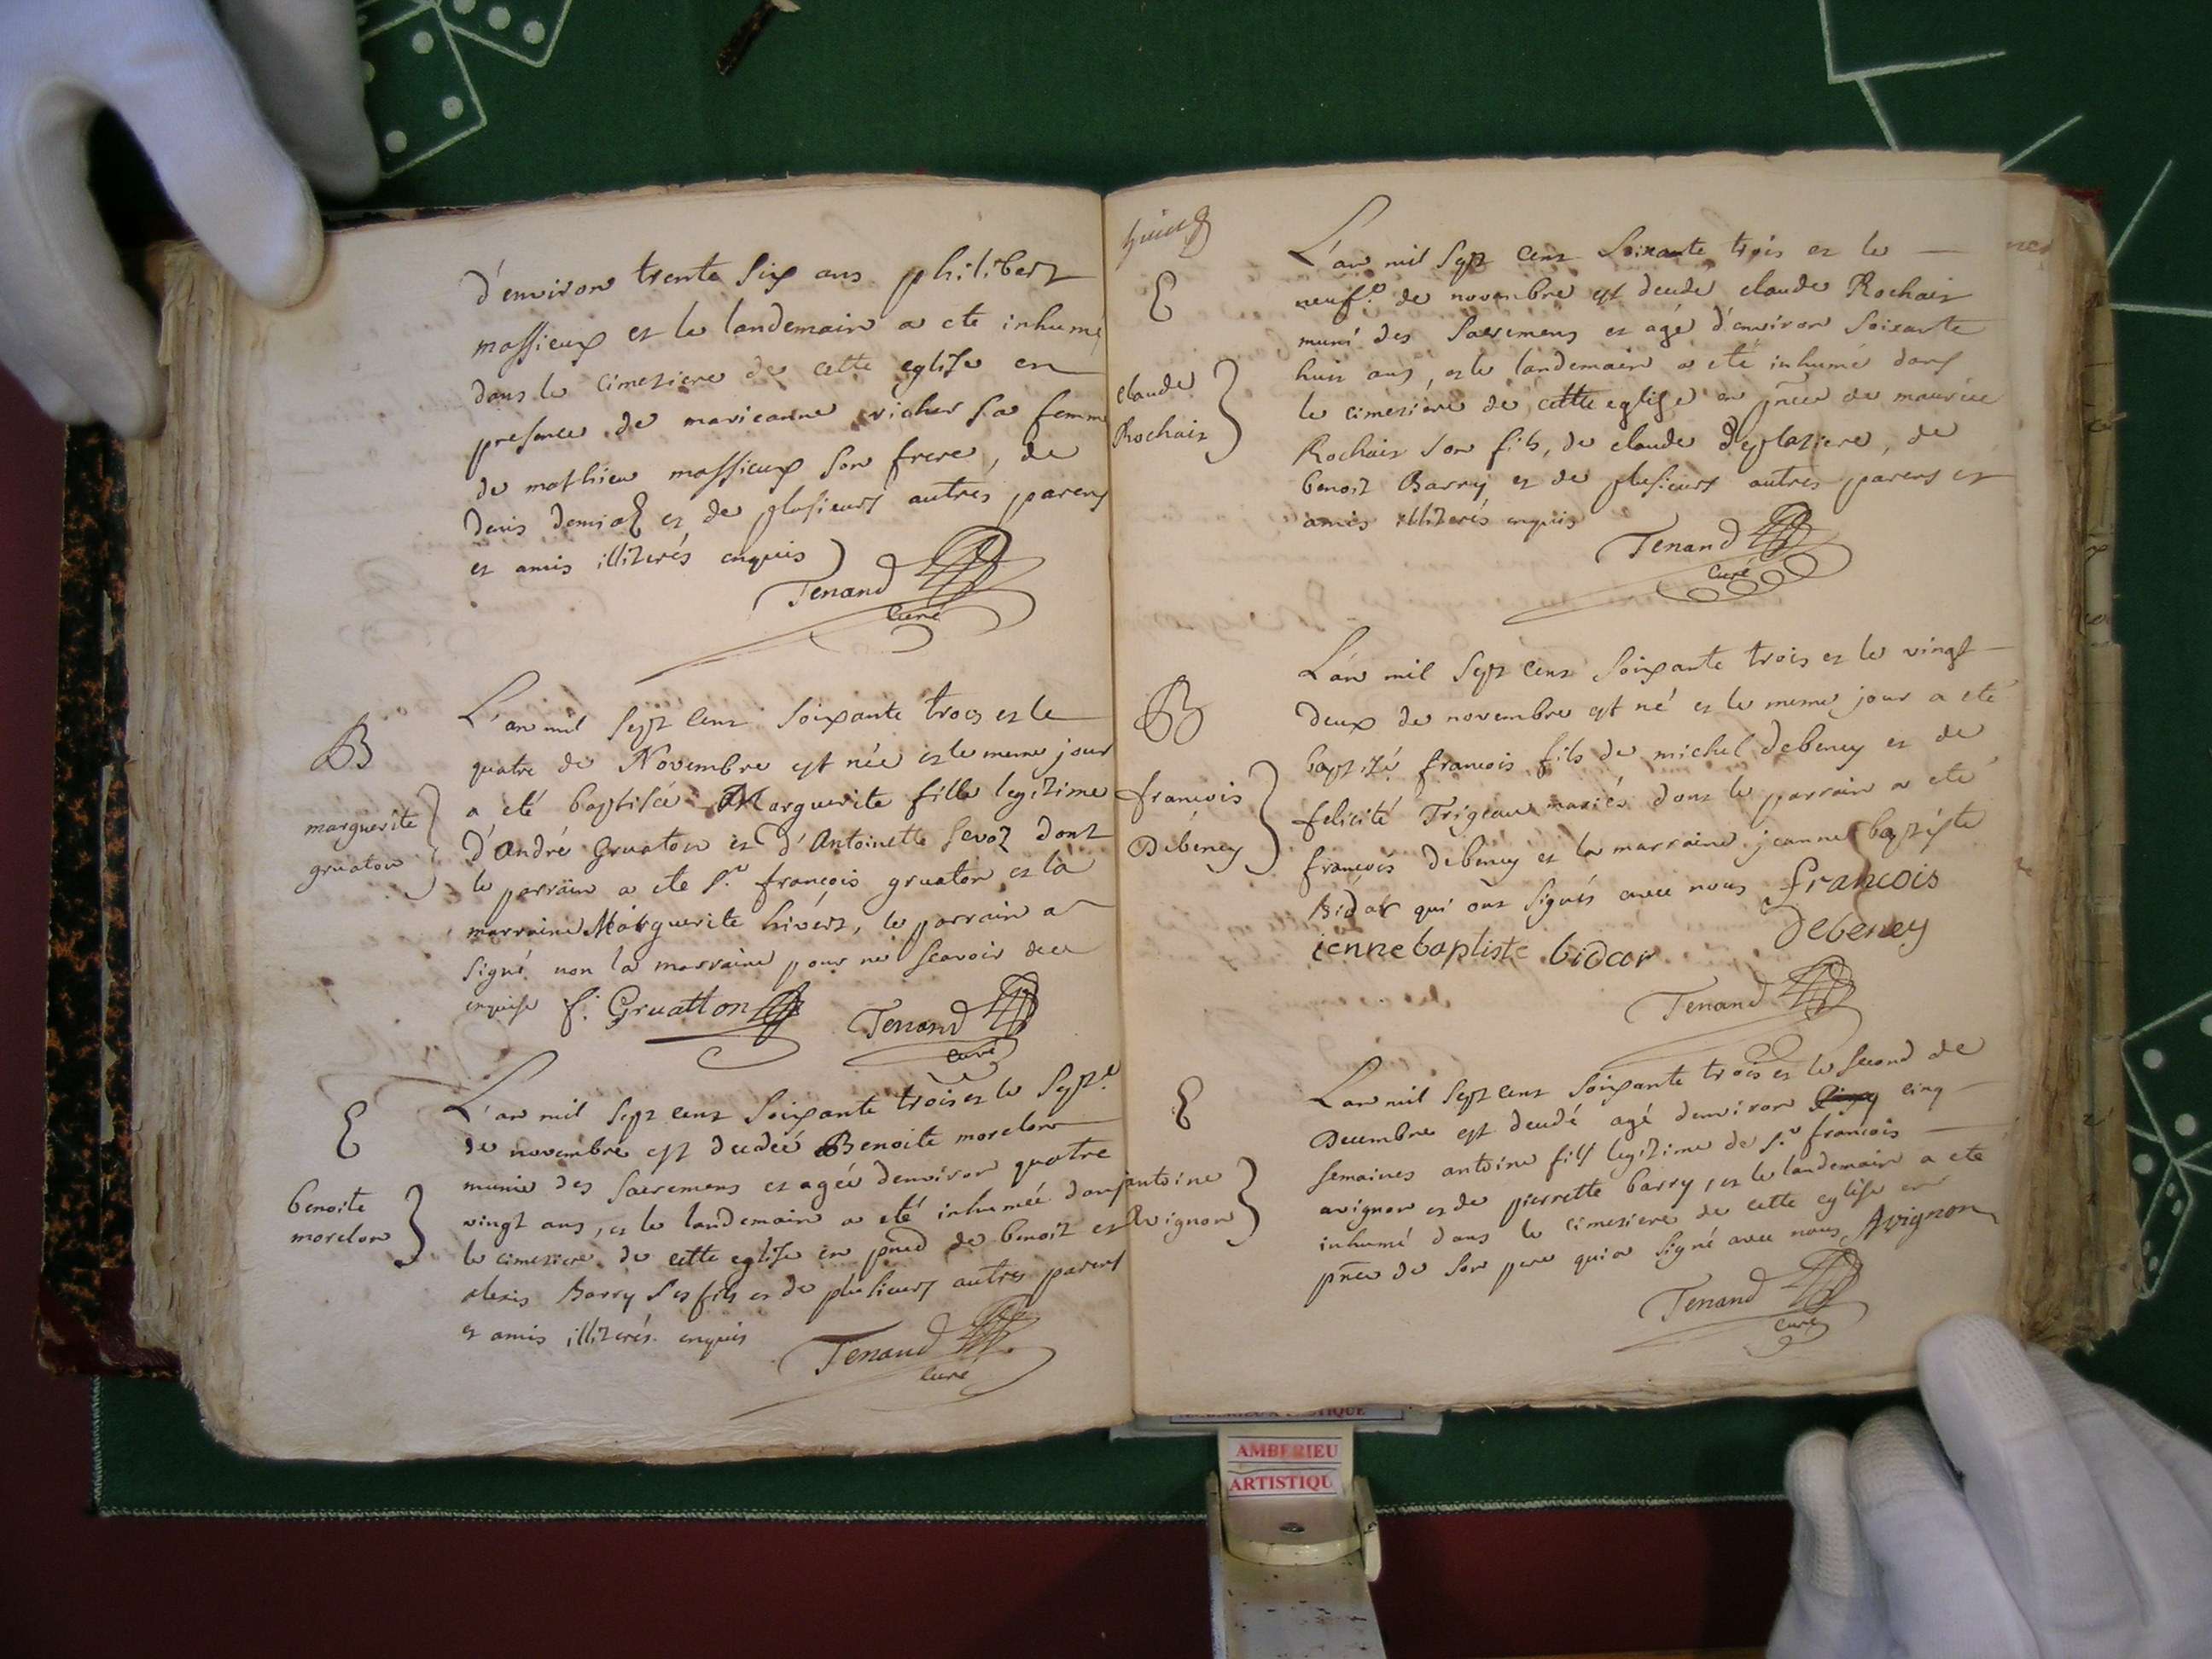 d'environ trente six ans philibert
massieux et le landemain a ete inhumé
dans le cimetiere de cette eglise en
presence de marieanne richer sa femme
de mathieu massieux son frere, de
denis et de plusieurs autres parens
et amis illiterés enquis
Tenand
curé
B
marguerite
gruaton
L'an mil sept cent soixante trois et le
quatre de Novembre est née et le meme jour
a eté baptisée Marguerite fille legitime
d'André Gruaton et d'Antoinette Sevoz dont
le parrain a ete Sr. françois gruaton et la
marraine Marguerite hivert, le parrain a
signé non la marraine pour ne scavoir de ce
enquise f. Gruatton Tenand
curé
E
benoite
morelon
L'an mil sept cent soixante trois et le sept.e
de novembre est decedée Benoite morelon
munie des sacremens et agée d'environ quatre
vingt ans, et le landemain a eté inhumée dans
le cimetiere de cette eglise en de benoit et
alexis Barry ses fils et de plusieurs autres parens
et amis illiterés enquis
Tenand
curé
E
claude
Rochaix
L'an mil sept cent soixante trois et le
neuf.e de novembre est decedé claude Rochaix
muni des sacremens et agé d'environ soixante
huit ans, et le landemain a eté inhumé dans
le cimetiere de cette eglise en pnce de maurice
Rochaix son fils, de claude Deplatiere, de
benoit Barry et de plusieurs autres parens et
amis illiterés enquis
Tenand
curé
B
francois
Debeney
L'an mil sept cent soixante trois et le vingt
deux de novembre est né et le meme jour a eté
baptisé francois fils de michel debeney et de
felicité Trigeau mariés dont le parrain a eté
francois debeney et la marraine jeanne baptiste
Bidar qui ont signés avec nous francois
debeney
iennebaptiste bidar
Tenand
E
antoine
Avignon
L'an mil sept cent soixante trois et le second de
Decembre est decedé agé d'environ cinq
semaines antoine fils legitime de Sr. francois
avignon et de pierrette barry, et le landemain a eté
inhumé dans le cimetiere de cette eglise en
pnce de son pere qui a signé avec nous Avignon
Tenand
curé
AMBERIEU
ARTISTIQU